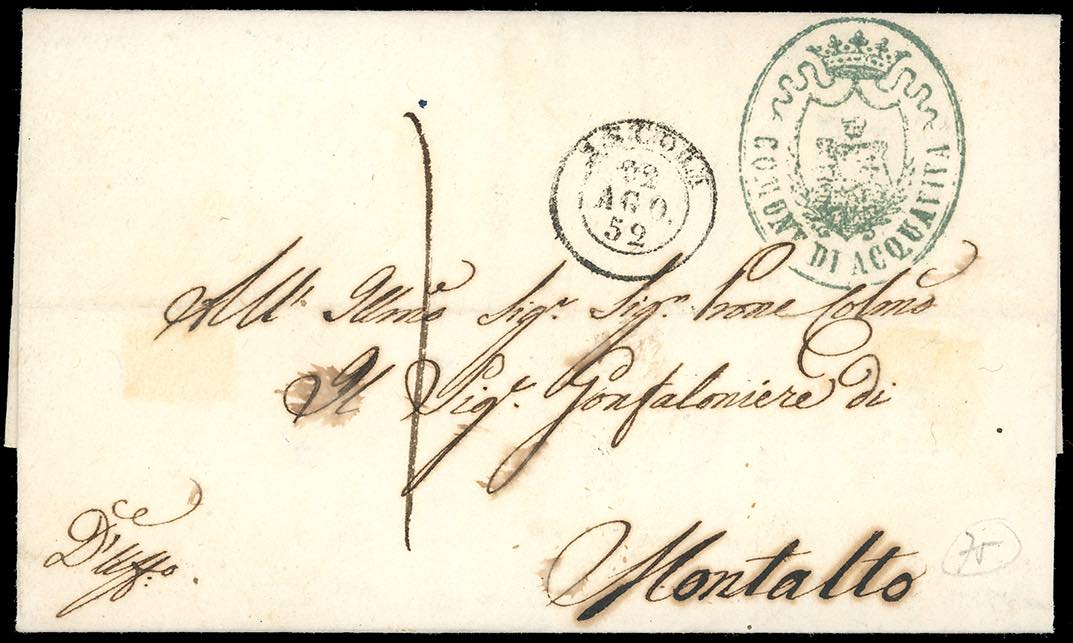 COMUNE DI ACQUAVIVA
AGO.
52
All' Illmo Sigr. Sigr. Prone Colmo
Il Sigr. Gonfaloniere di
Montalto
D'Uffo.
75